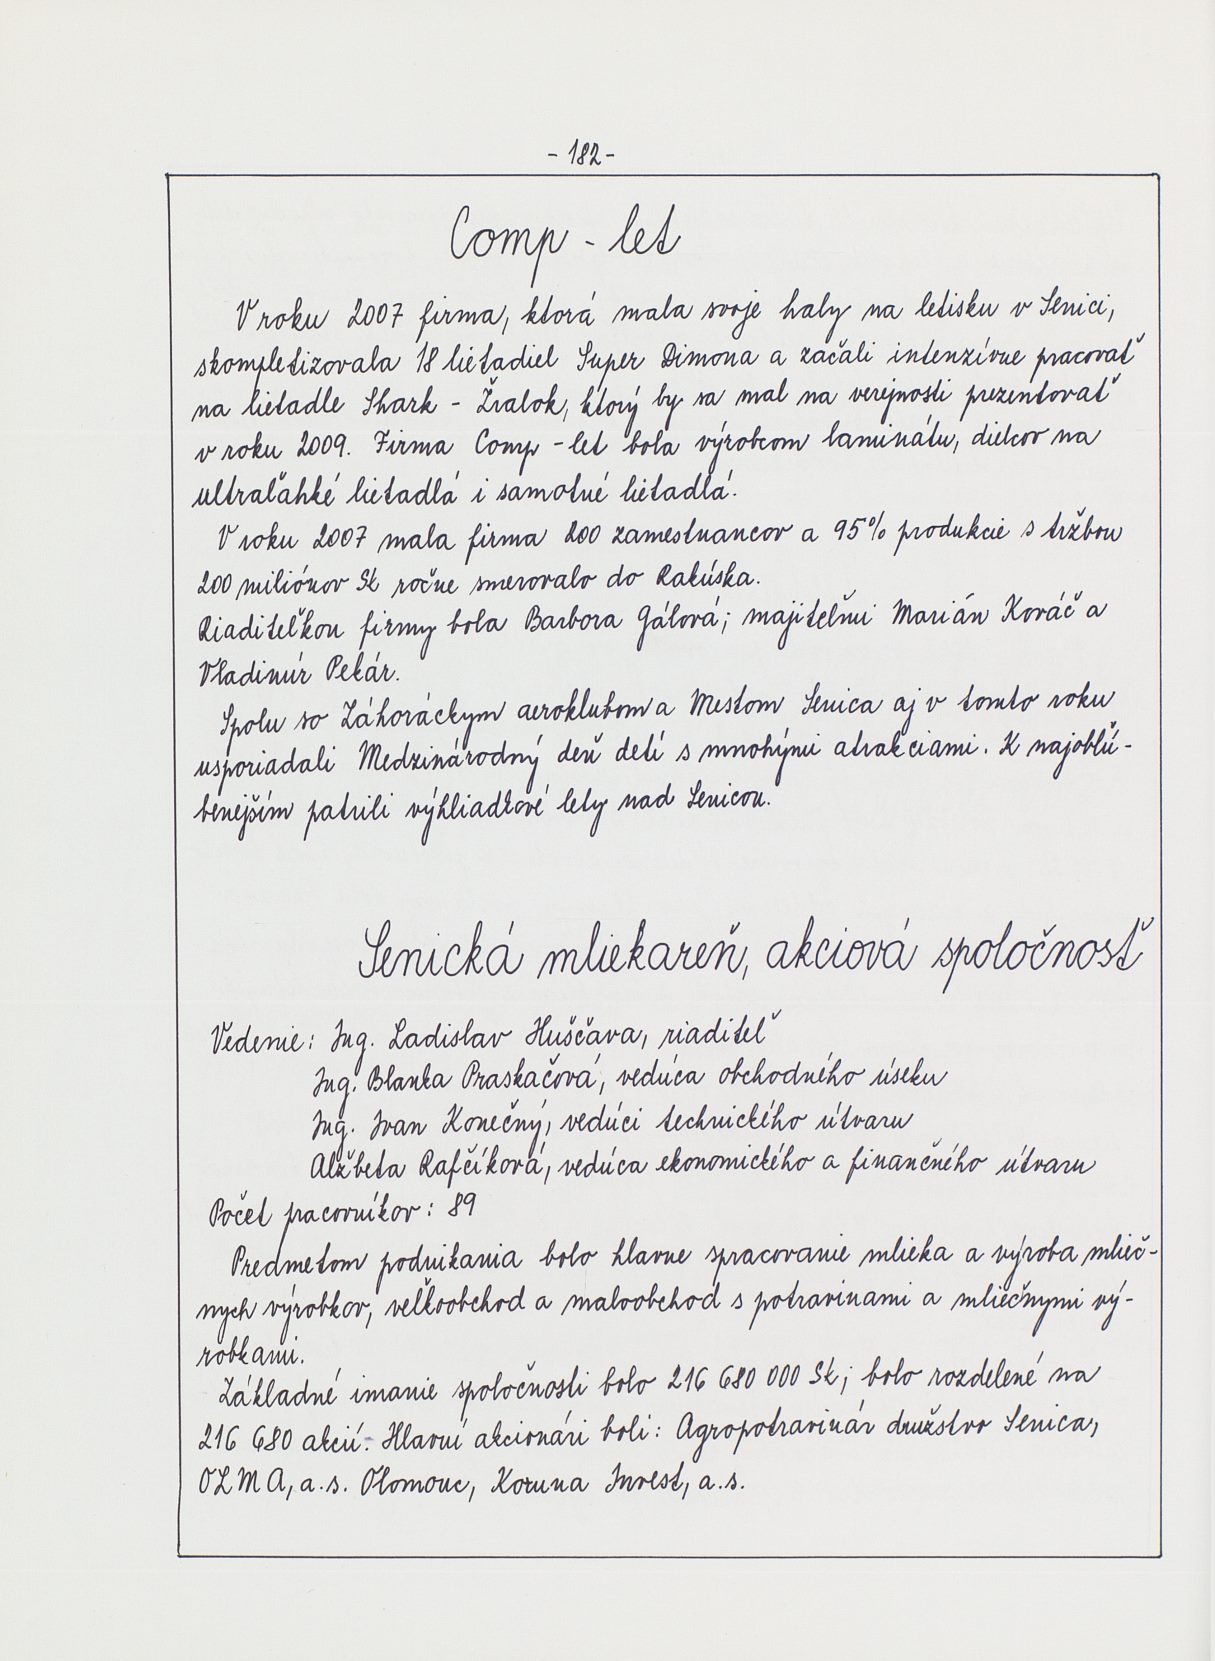 - 182 -
Comp - let
V roku 2007 firma, ktorá mala svoje haly na letisku v Senici,
skompletizovala 18 lietadiel Super Dimona a začali intenzívne pracovať
na lietadle Shark - Žralok, ktorý by sa mal na verejnosti prezentovať
v roku 2009. Firma Comp - let bola výrobcom laminátu, dielcov na
ultraľahké lietadlá i samotné lietadlá.
V roku 2007 mala firma 200 zamestnancov a 95% produkcie s tržbou
200 miliónov Sk ročne smerovalo do Rakúska.
Riaditeľkou firmy bola Barbora Gálová; majiteľmi Marián Kováč a
Vladimír Pekár.
Spolu so Záhoráckym aeroklubom a Mestom Senica aj v tomto roku
usporiadali Medzinárodný deň detí s mnohými atrakciami. K najobľú-
benejším patrili výhliadkové lety nad Senicou.
Senická mliekareň, akciová spoločnosť
Vedenie: Ing. Ladislav Huščava, riaditeľ
Ing. Blanka Praskačová, vedúca obchodného úseku
Ing. Ivan Konečný, vedúci technického útvaru
Alžbeta Rafčíková, vedúca ekonomického a finančného útvaru
Počet pracovníkov: 89
Predmetom podnikania bolo hlavne spracovanie mlieka a výroba mlieč-
nych výrobkov, veľkoobchod a maloobchod s potravinami a mliečnymi vý-
robkami.
Základné imanie spoločnosti bolo 216 680 000 Sk; bolo rozdelené na
216 680 akcií. Hlavní akcionári boli: Agropotravinár družstvo Senica,
OLMA, a.s. Olomouc, Koruna Invest, a.s.